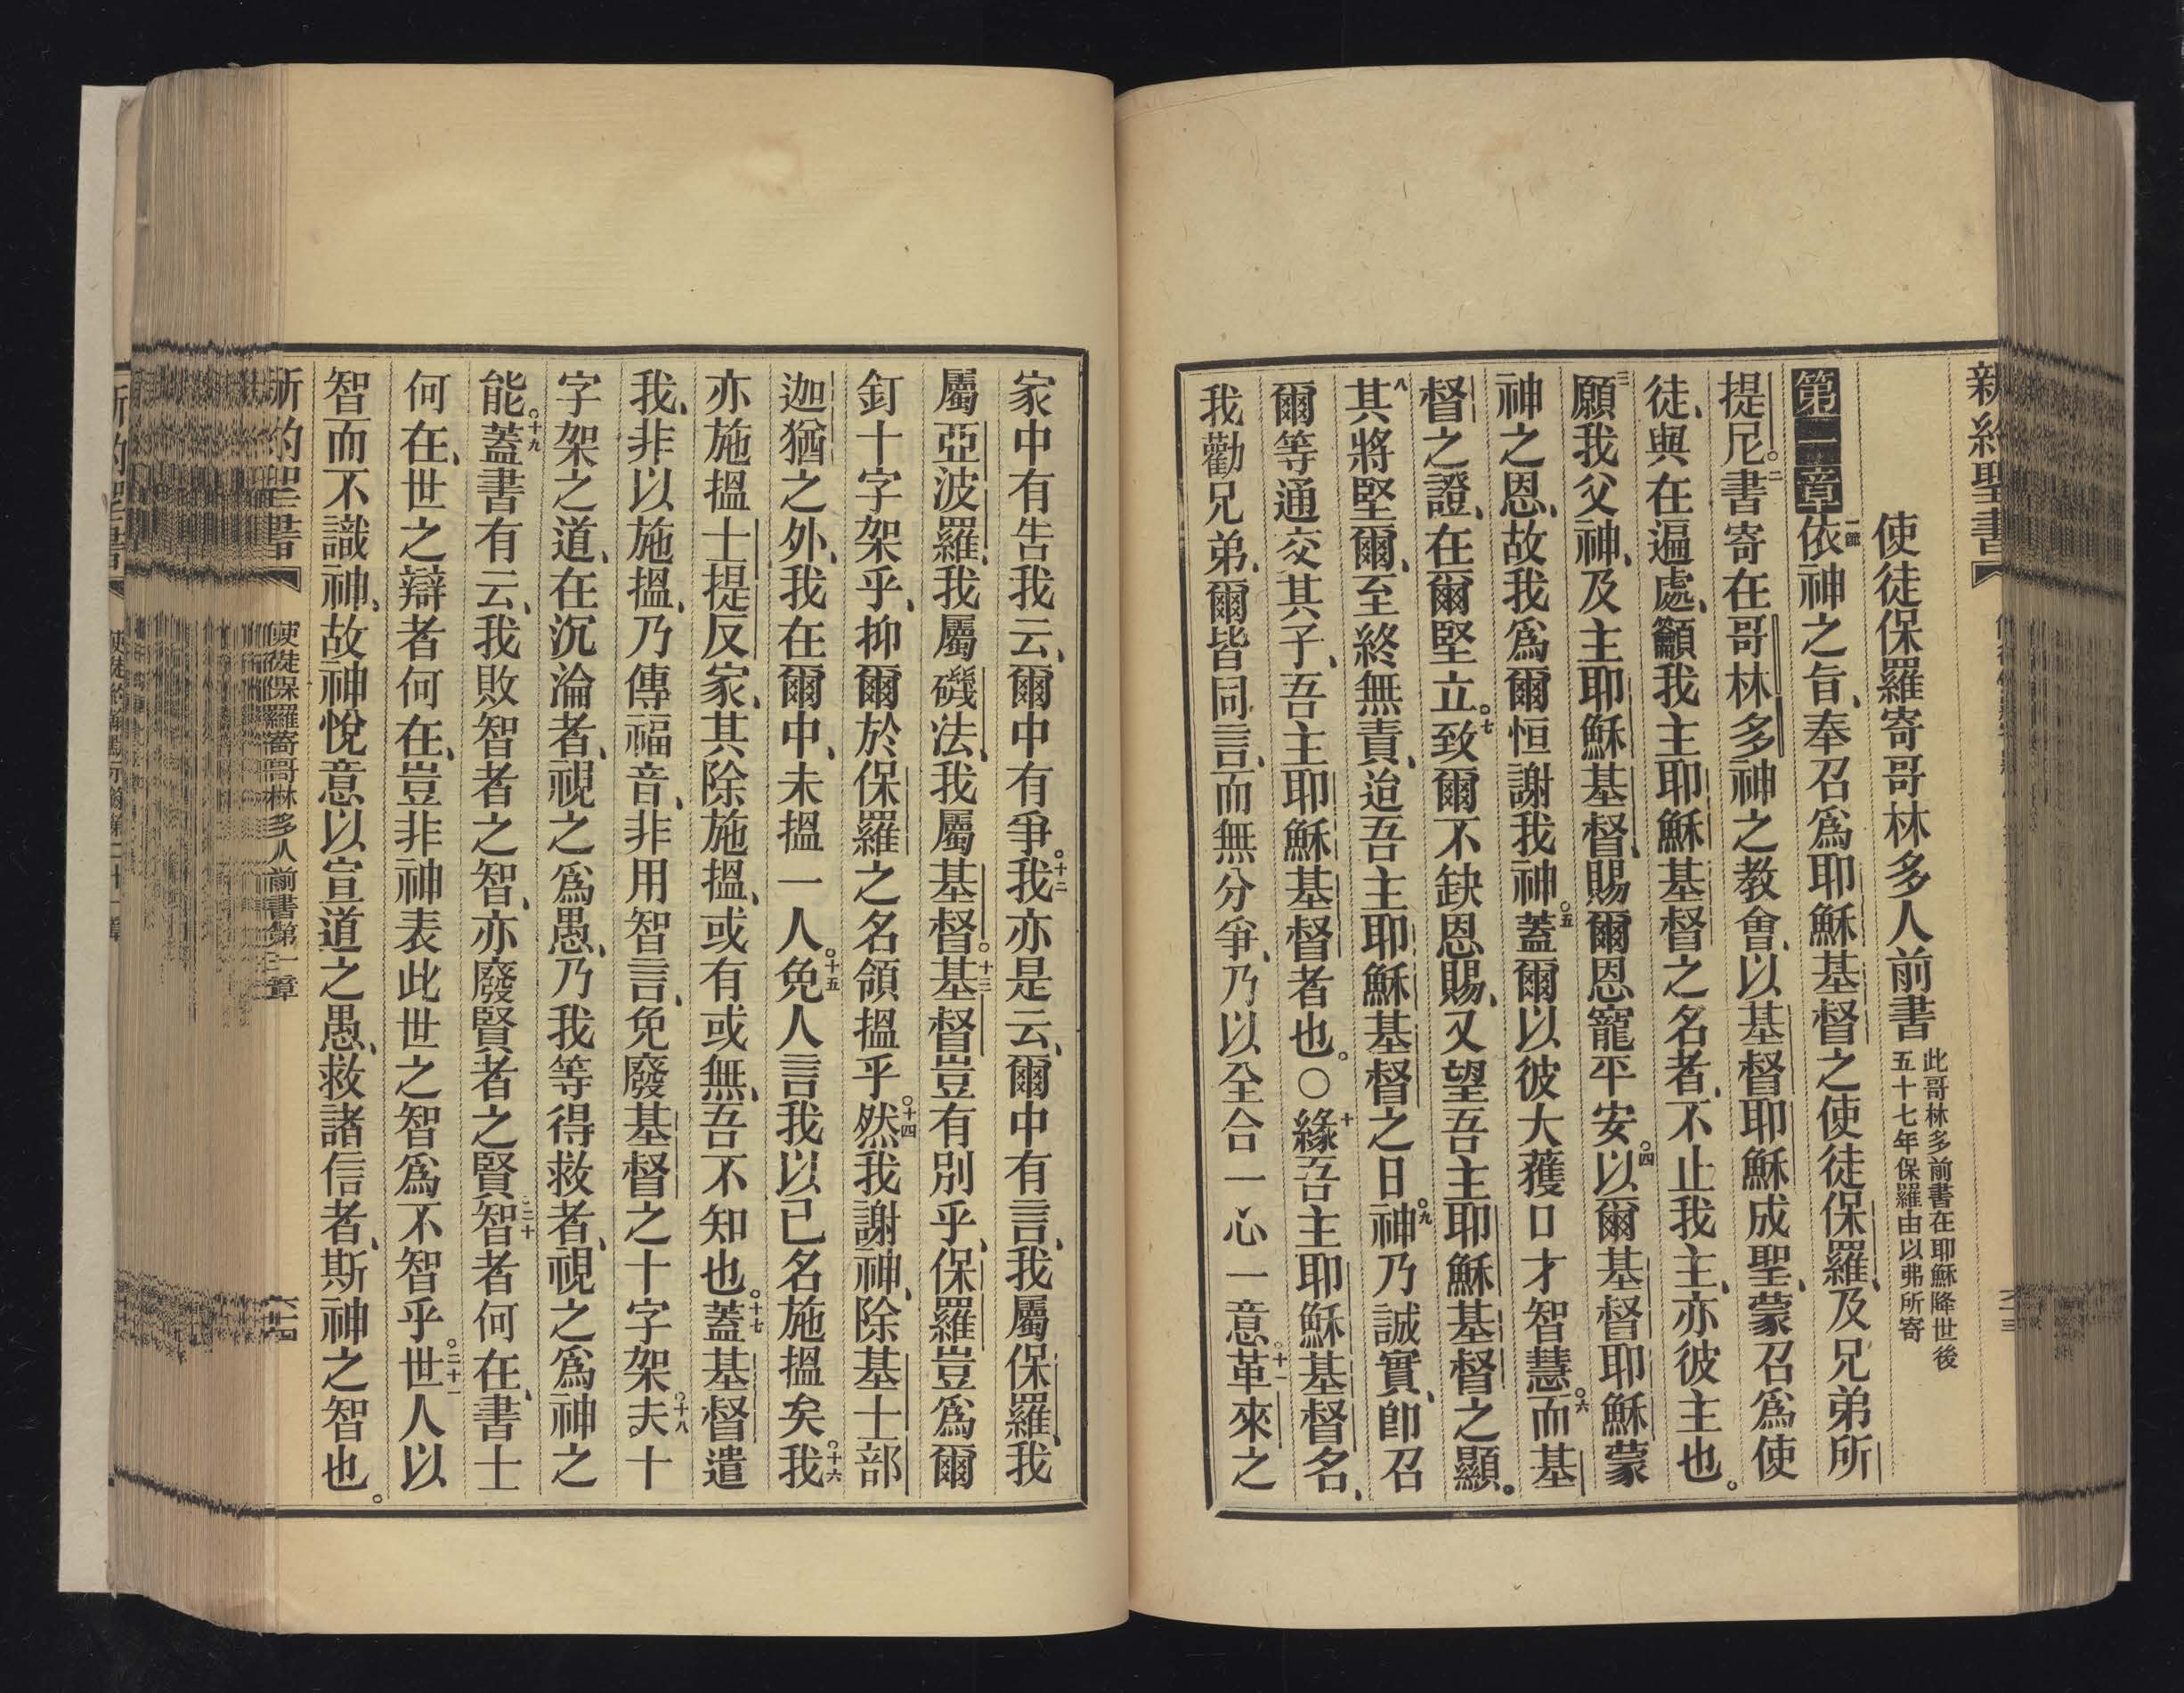 新約聖書
使徒保羅寄哥林多人前書 此哥林多前書在耶穌降世後五十七年保羅由以弗所寄
第一章 一節依神之旨、奉召爲耶穌基督之使徒保羅、及兄弟所
提尼。二書寄在哥林多神之教會、以基督耶穌成聖、蒙召爲使
徒、與在遍處、籲我主耶穌基督之名者、不止我主、亦彼主也。
三願我父神、及主耶穌基督、賜爾恩寵平安。四以爾基督耶穌蒙
神之恩、故我爲爾恒謝我神。五蓋爾以彼大獲口才智慧。六而基
督之證、在爾堅立。七致爾不缺恩賜、又望吾主耶穌基督之顯。
八其將堅爾、至終無責、迨吾主耶穌基督之日。九神乃誠實、卽召
爾等通交其子、吾主耶穌基督者也。○十緣吾主耶穌基督名、
我勸兄弟、爾皆同言、而無分爭、乃以全合一心一意。十一革來之
家中有告我云、爾中有爭。十二我亦是云、爾中有言、我屬保羅、我
屬亞波羅、我屬磯法、我屬基督。十三基督豈有別乎、保羅豈爲爾
釘十字架乎、抑爾於保羅之名領搵乎。十四然我謝神、除基士部
迦猶之外、我在爾中、未搵一人。十五免人言我以已名施搵矣。十六我
亦施搵士提反家、其除施搵、或有或無、吾不知也。十七蓋基督遣
我、非以施搵、乃傳福音、非用智言、免廢基督之十字架。十八夫十
字架之道、在沉淪者、視之爲愚、乃我等得救者、視之爲神之
能。十九蓋書有云、我敗智者之智、亦廢賢者之賢。二十智者何在、書士
何在、世之辯者何在、豈非神表此世之智爲不智乎。二十一世人以
智而不識神、故神悅意以宣道之愚、救諸信者、斯神之智也。
新約聖書 使徒保羅寄哥林多人前書第一章 六十四